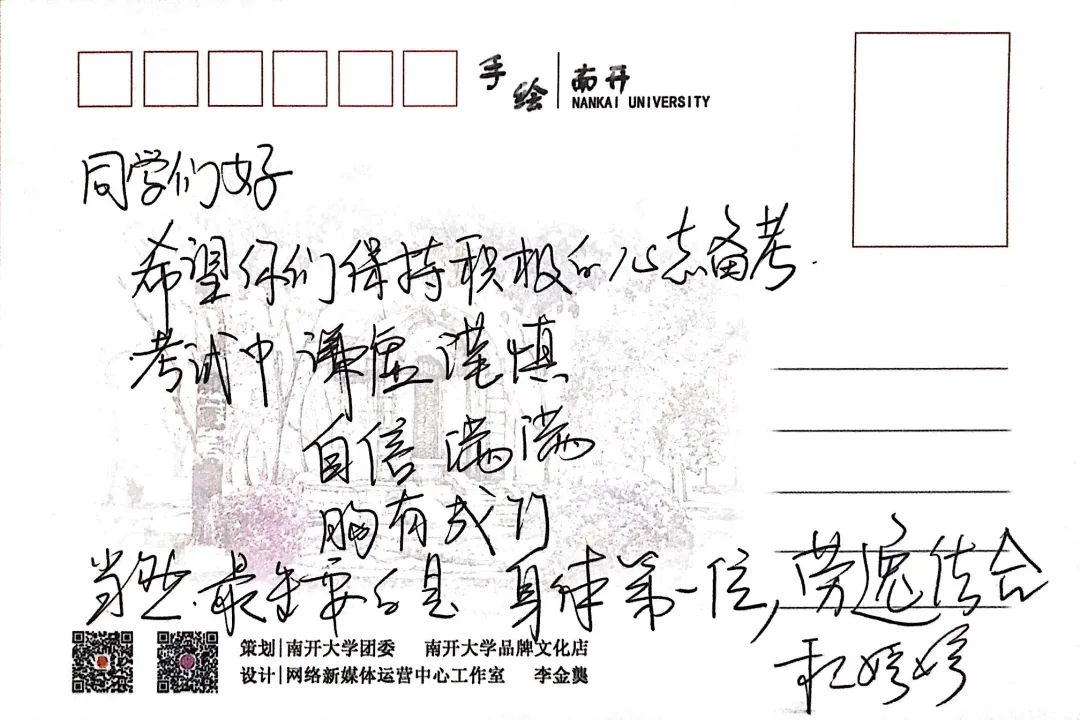 手绘 南开
NANKAI UNIVERSITY
同学们好
希望你们保持积极的心态备考.
考试中 谦虚谨慎
自信满满
胸有成竹
当然.最重要的是 身体第一位,劳逸结合
杜婷婷
策划|南开大学团委 南开大学品牌文化店
设计|网络新媒体运营中心工作室 李金